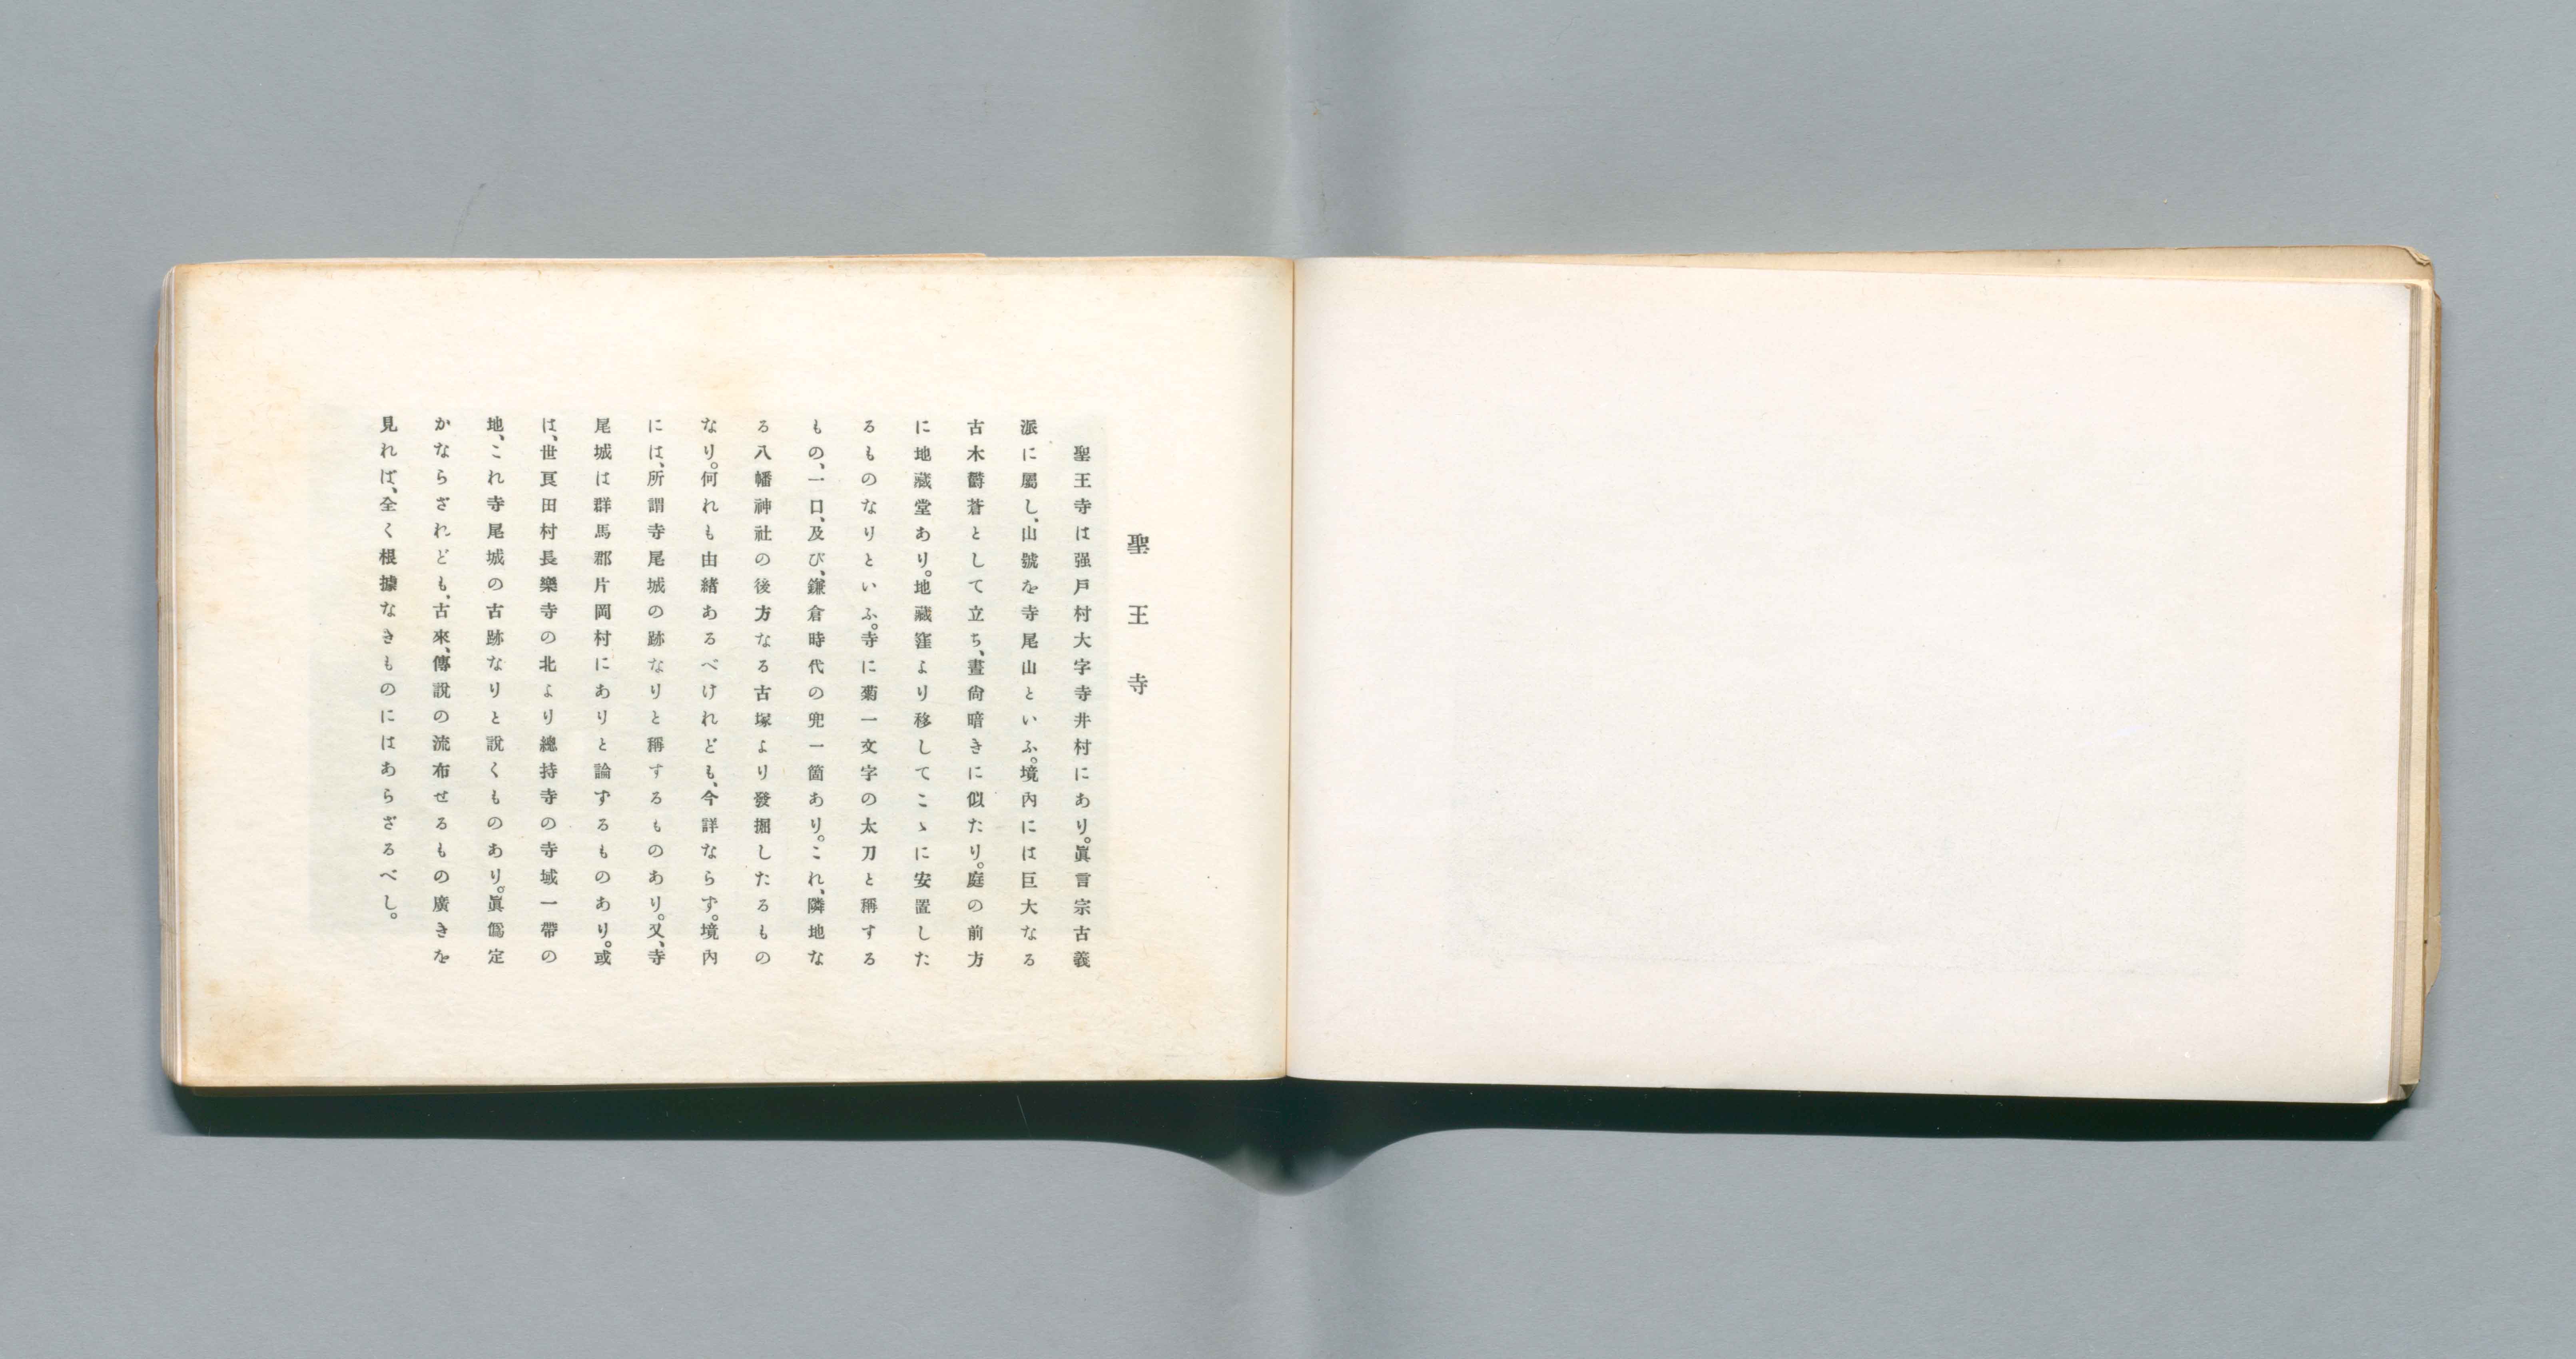 聖王寺
聖王寺は强戸村大字寺井村にあり。眞言宗古義
派に屬し、山號を寺尾山といふ。境內には巨大なる
古木欝蒼として立ち、晝尙暗きに似たり。庭の前方
に地藏堂あり。地藏窪より移してこゝに安置した
るものなりといふ。寺に菊一文字の太刀と稱する
もの、一口、及び、鎌倉時代の兜一箇あり。これ、隣地な
る八幡神社の後方なる古塚より發掘したるもの
なり。何れも由緖あるべけれども、今詳ならず。境內
には、所謂寺尾城の跡なりと稱するものあり。又、寺
尾城は群馬郡片岡村にありと論ずるものあり。或
は、世良田村長樂寺の北より總持寺の寺域一帶の
地、これ寺尾城の古跡なりと說くものあり。眞僞定
かならざれども、古來、傳說の流布せるもの廣きを
見れば、全く根據なきものにはあらざるべし。